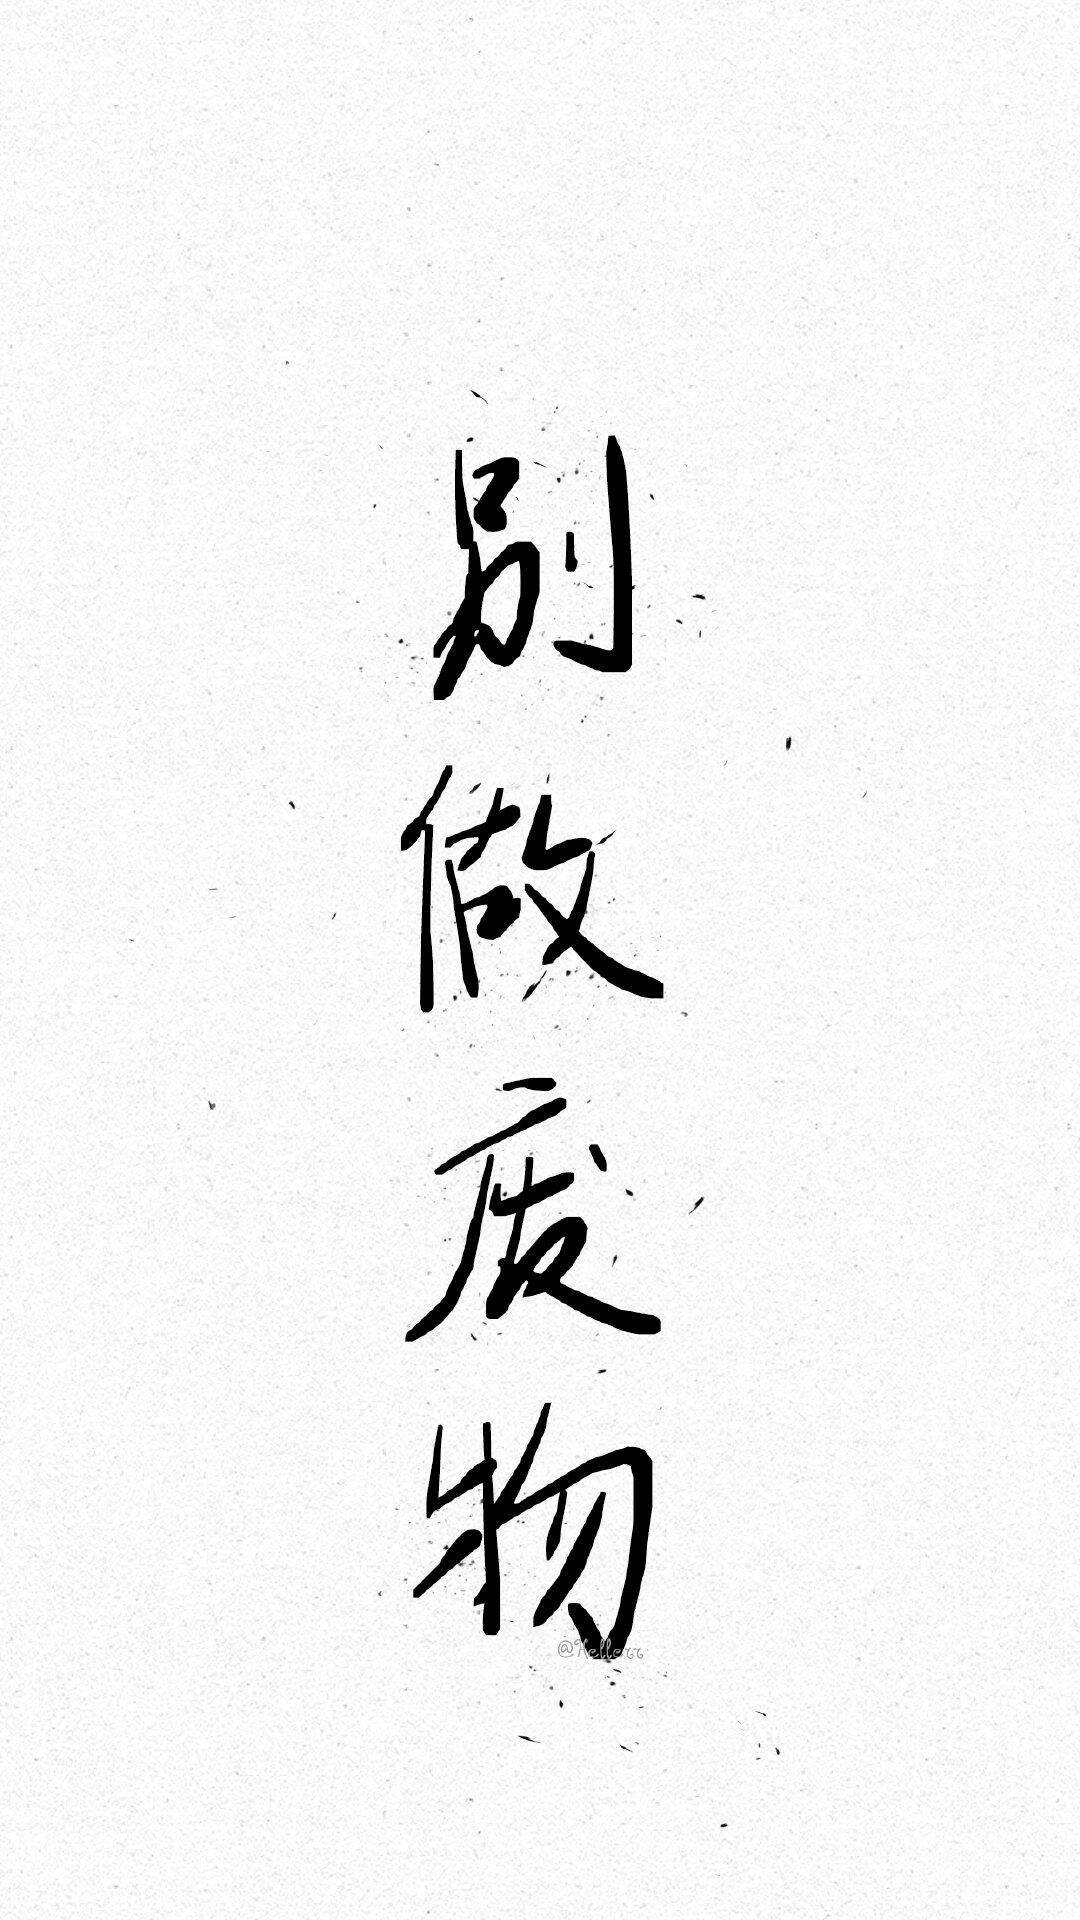 别做废物
@Hellerr